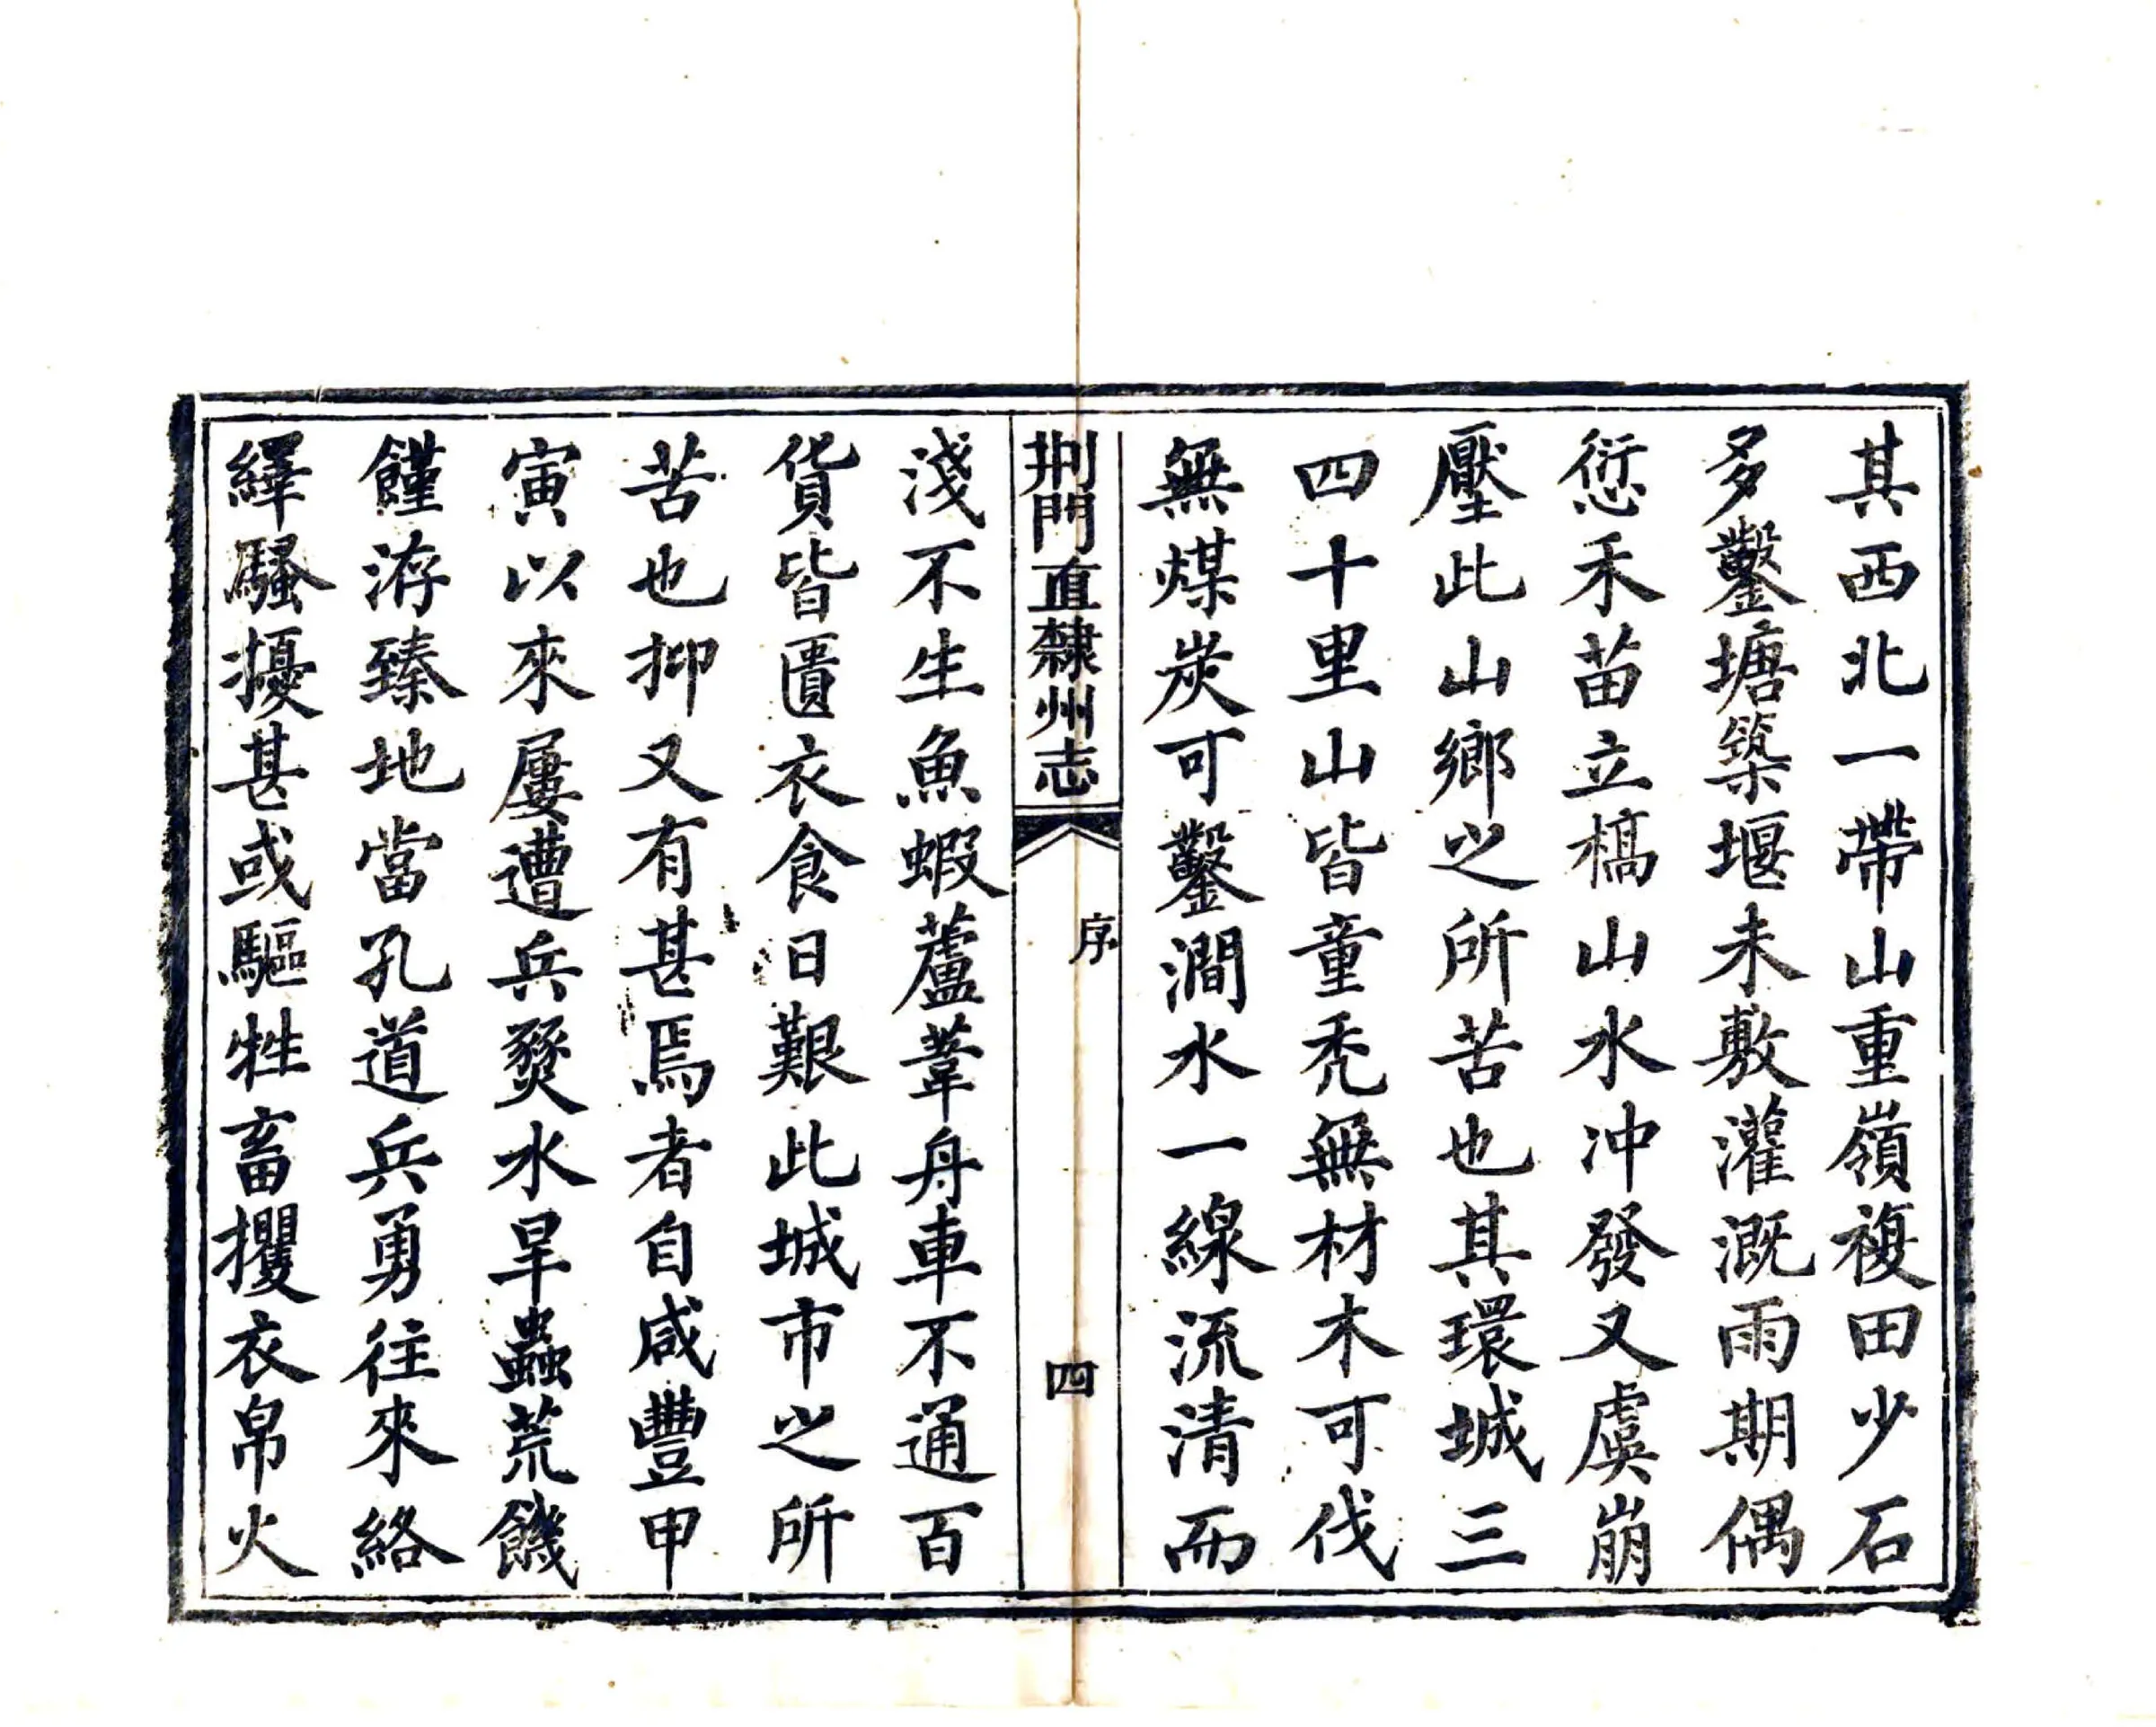 其西北一帶山重嶺複田少石
多鑿塘築堰未敷灌溉雨期偶
愆禾苗立槁山水冲發又虞崩
壓此山鄉之所苦也其環城三
四十里山皆童禿無材木可伐
無煤炭可鑿澗水一線流清而
荆門直隸州志
序
四
淺不生魚蝦蘆葦舟車不通百
貨皆匱衣食日艱此城市之所
苦也抑又有甚焉者自咸豐甲
寅以來屢遭兵燹水旱蟲荒饑
饉洊臻地當孔道兵勇往來絡
繹騷擾甚或驅牲畜攫衣帛火